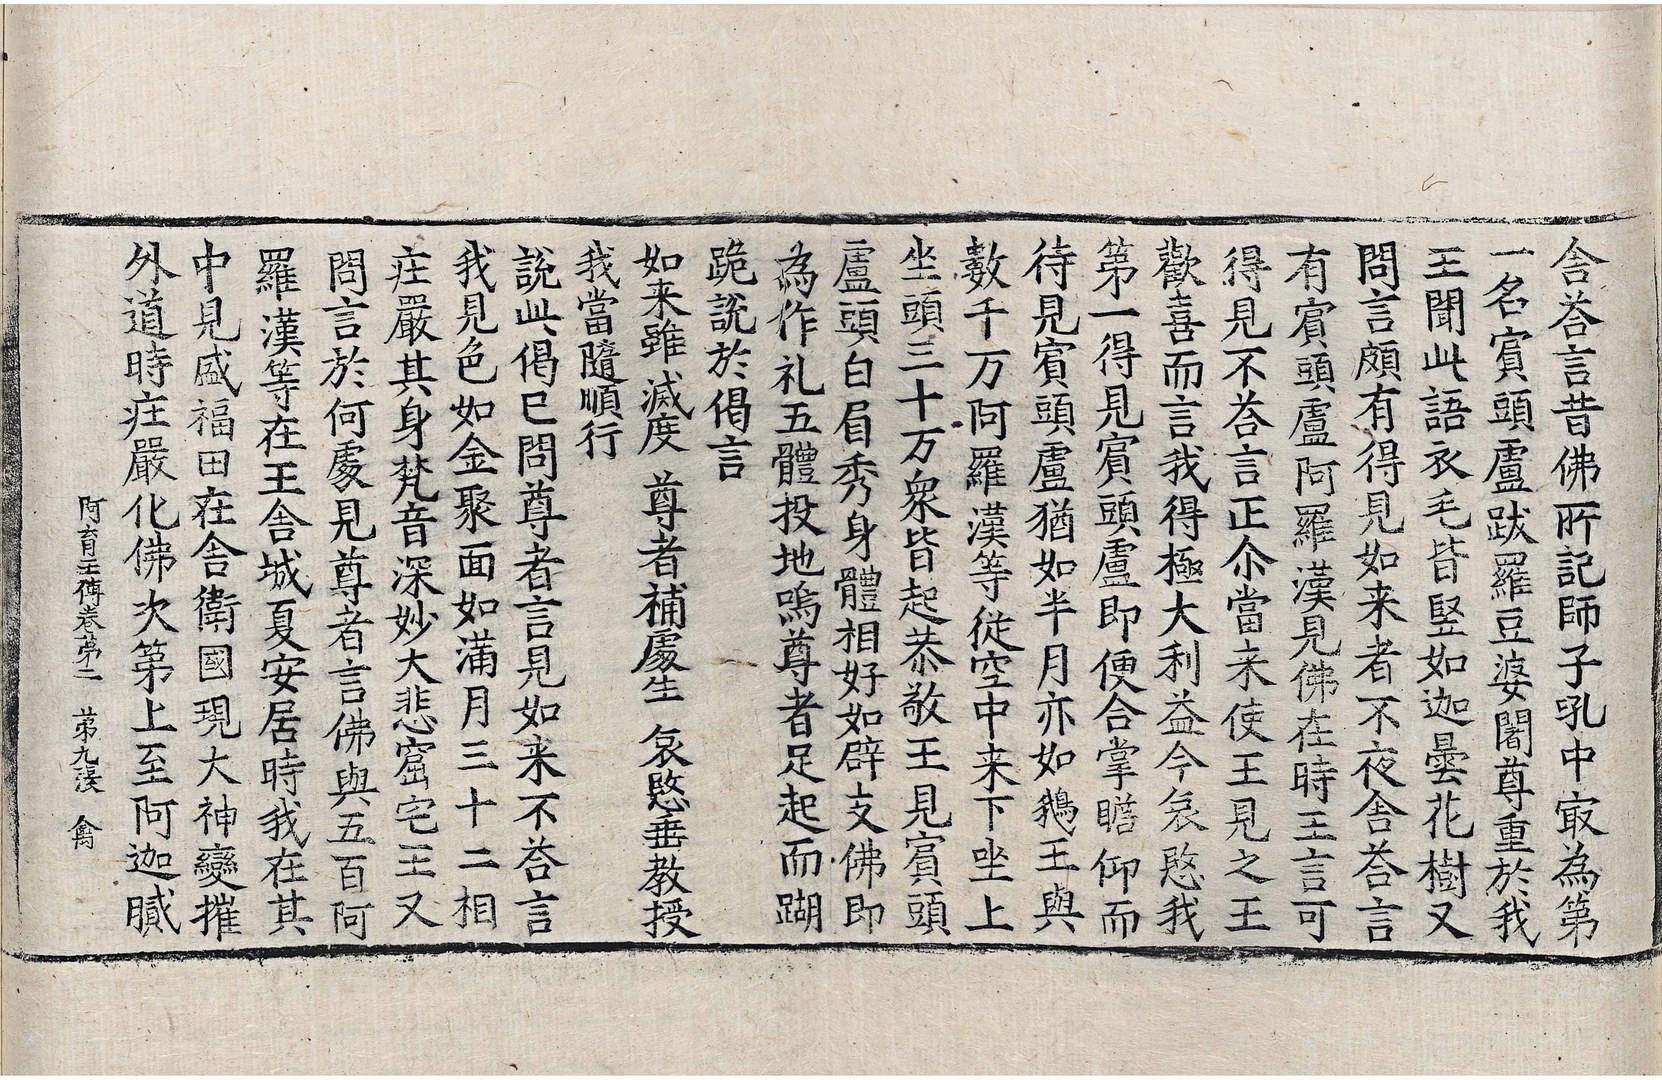 舎荅言昔佛所記師子吼中㝡為第
一名賔頭盧跋羅豆婆闍尊重於我
王聞此語衣毛皆竪如迦曇花樹又
問言頗有得見如来者不夜舎荅言
有賔頭盧阿羅漢見佛在時王言可
得見不荅言正尒當来使王見之王
歡喜而言我得極大利益今哀愍我
第一得見賔頭盧即便合掌瞻仰而
待見賔頭盧猶如半月亦如鵝王與
數千万阿羅漢等従空中来下坐上
坐頭三十万衆皆起恭敬王見賔頭
盧頭白眉秀身體相好如辟支佛即
為作礼五體投地嗚尊者足起而䠒
跪說於偈言
如来雖滅度　尊者補處生　哀愍垂教授
我當隨順行
說此偈已問尊者言見如来不荅言
我見色如金聚面如滿月三十二相
庄嚴其身梵音深妙大悲窟宅王又
問言於何處見尊者言佛與五百阿
羅漢等在王舎城夏安居時我在其
中見盛福田在舎衛國現大神變摧
外道時庄嚴化佛次第上至阿迦膩
阿育王傳卷第二　第九張　禽